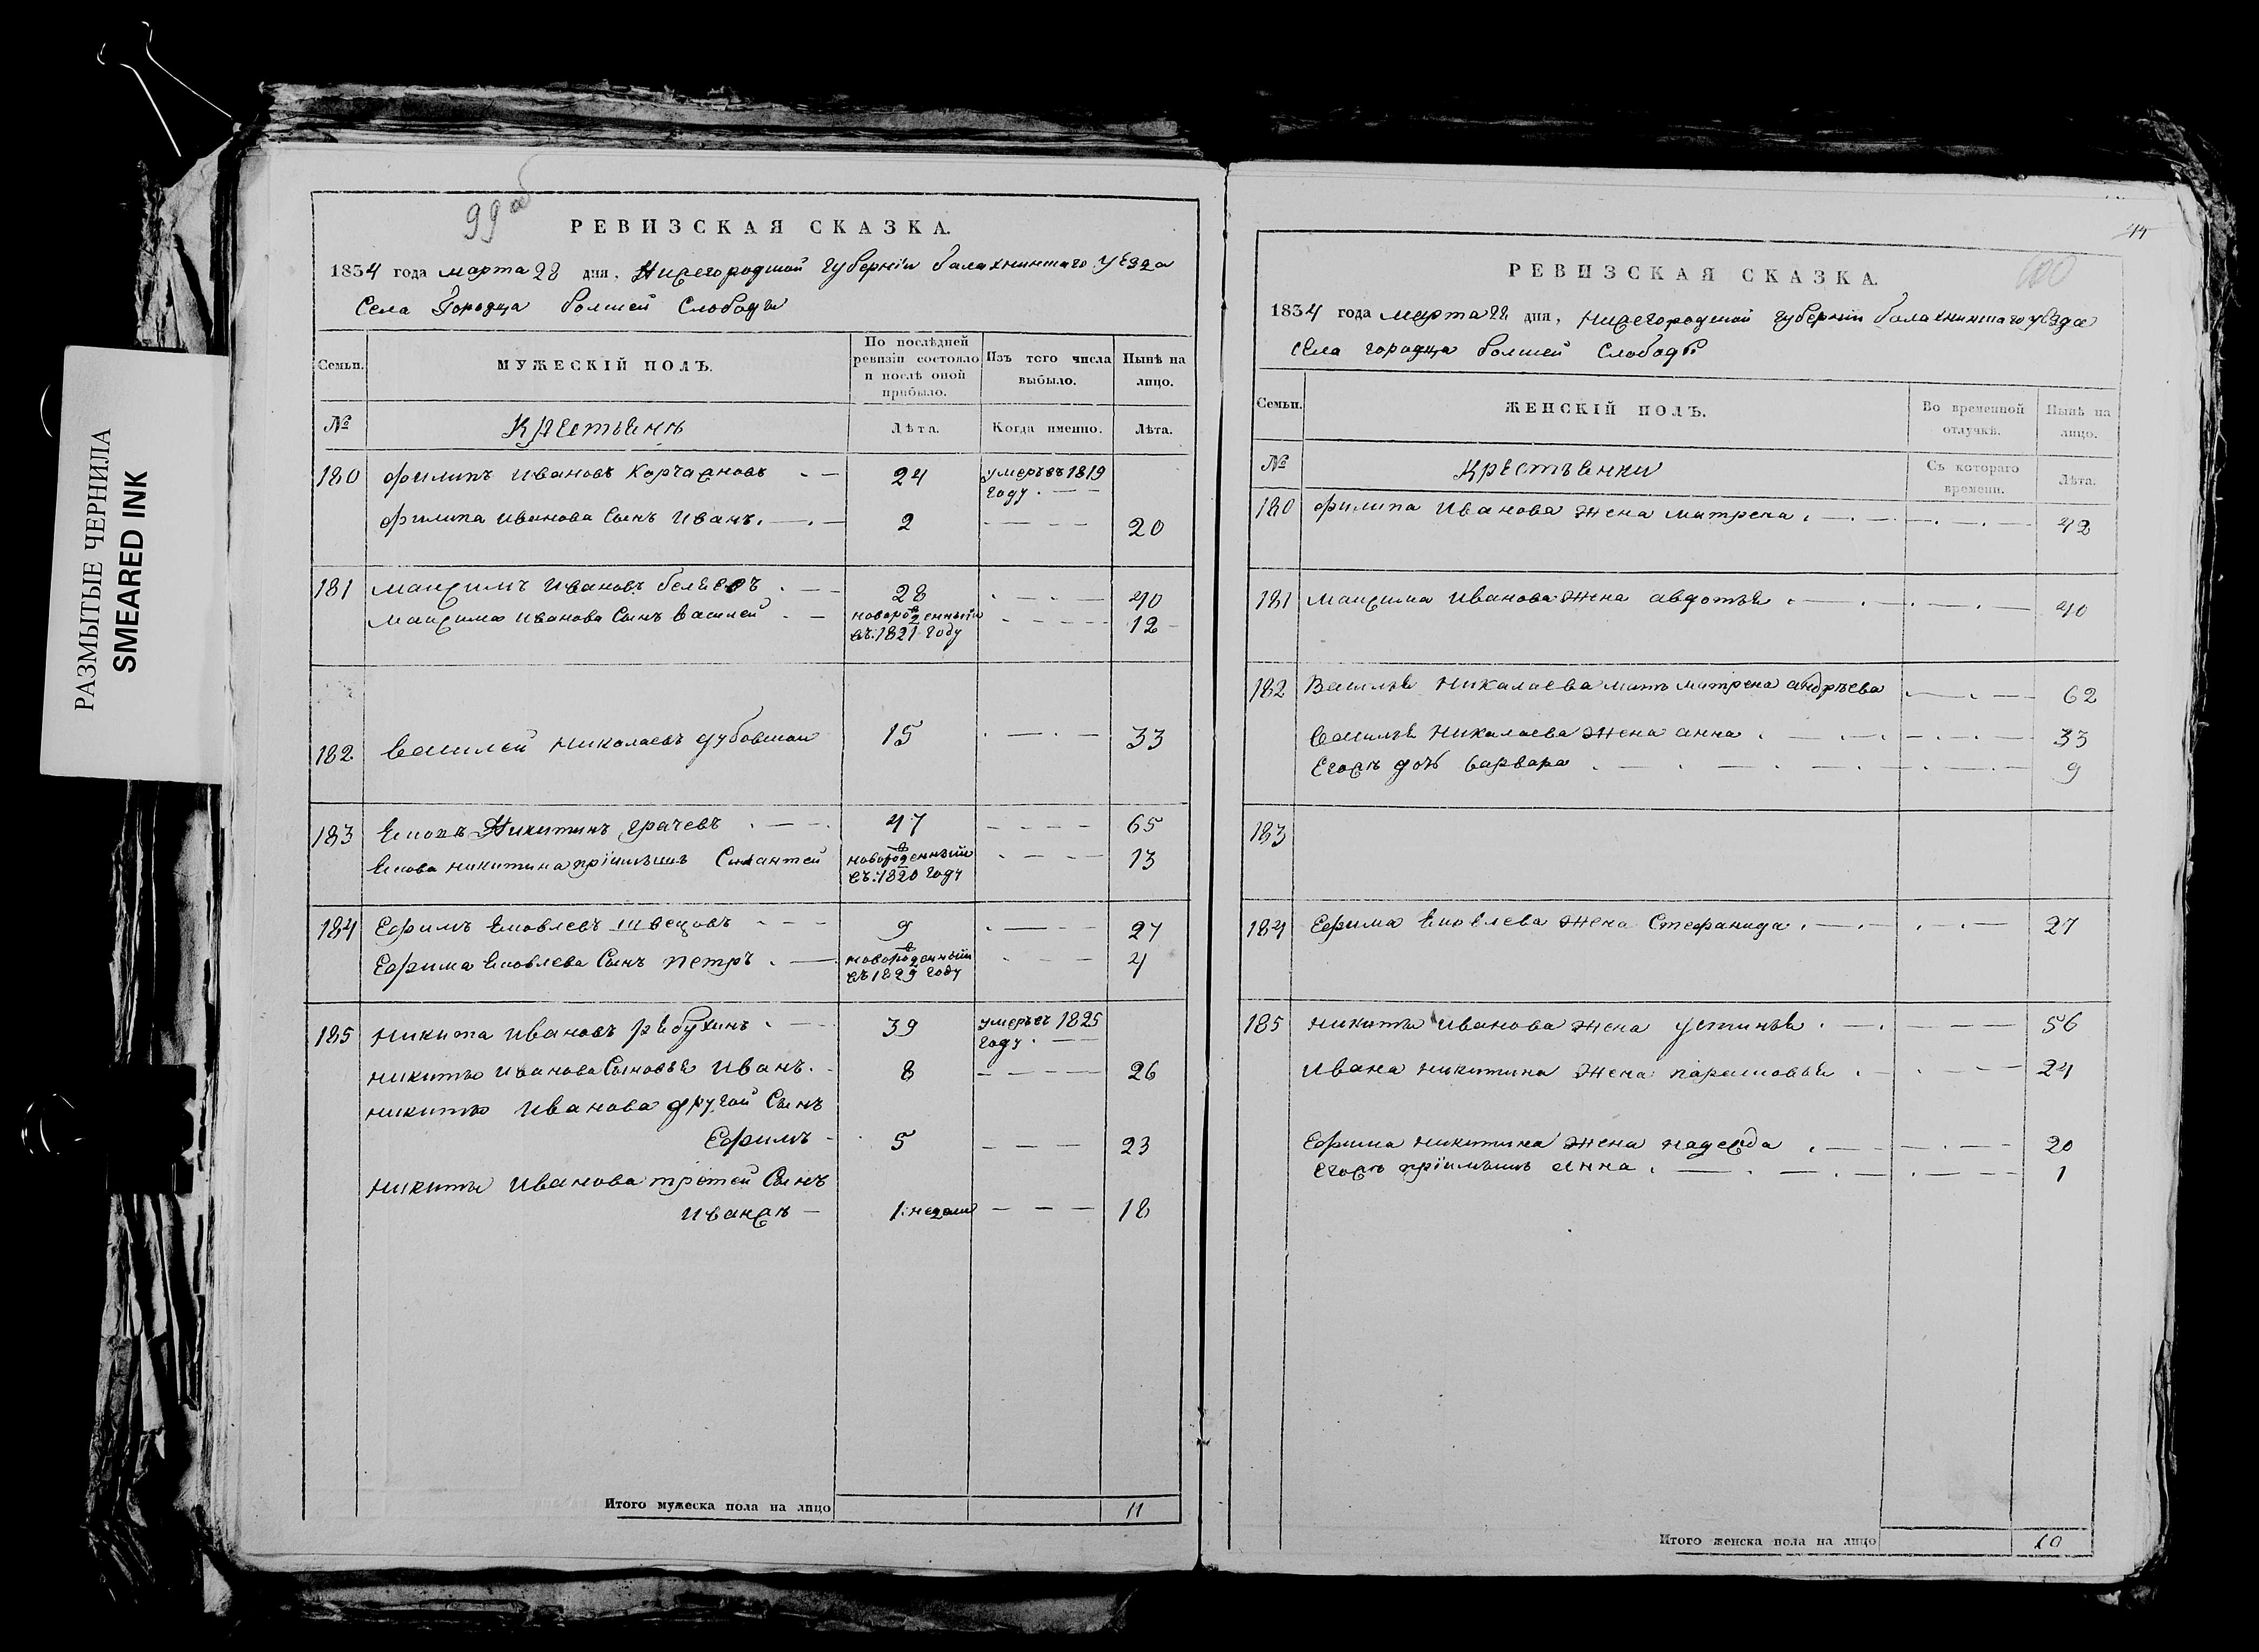 РАЗМЫТЫЕ ЧЕРНИЛА
SMEARED INK
99 об
РЕВИЗСКАЯ СКАЗКА.
1834 года марта 28 дня, Нижегородской губерніи балахнинскаго уѣзда
Села Городца болшей Слободы
Семьи.
МУЖЕСКІЙ ПОЛЪ.
По послѣдней ревизіи состояло и послѣ оной прибыло.
Изъ того числа выбыло.
Нынѣ на лицо.
№
Крестьянѣ
Лѣта.
Когда именно.
Лѣта.
180 филипъ ивановъ Корчажновъ 24 умеръ въ 1819
году
филипа иванова Сынъ иванъ 2 20
181 максимъ ивановъ беляевъ 28 40
максима иванова Сынъ василей новорожденный 12
въ 1821 году
182 василей николаевъ дубовской 15 33
183 яковъ Никитинъ грачевъ 47 65
якова никитина пріимышъ Силантей новорожденный 13
въ 1820 году
184 Ефимъ яковлевъ швецовъ 9 27
Ефима яковлева Сынъ петръ новорожденный 4
въ 1829 году
185 никита ивановъ рябухинъ 39 умеръ въ 1825
году
никиты иванова Сыновья иванъ 8 26
никиты иванова другой Сынъ
Ефимъ 5 23
никиты иванова третей Сынъ
иванже 1 недели 18
Итого мужеска пола на лицо 11
44
100
РЕВИЗСКАЯ СКАЗКА.
1834 года марта 28 дня, нижегородской губерніи балахнинскаго уѣзда
села городца болшей Слободы
Семьи.
ЖЕНСКІЙ ПОЛЪ.
Во временной отлучкѣ.
Нынѣ на лицо.
№
Крестьянки
Съ котораго времени.
Лѣта.
180 филипа иванова жена матрена 42
181 максима иванова жена авдотья 40
182 Василья николаева мать матрена андреева 62
василья николаева жена анна 33
Егожъ дочь варвара 9
183
184 Ефима яковлева жена Стефанида 27
185 никиты иванова жена устинья 56
ивана никитина жена парасковья 24
Ефима никитина жена надежда 20
егожъ пріимышъ анна 1
Итого женска пола на лицо 10